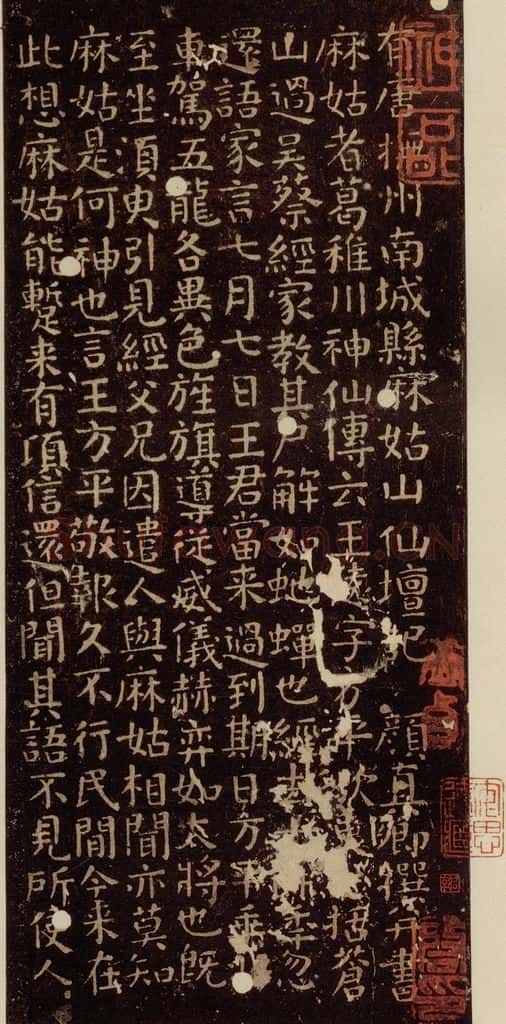 有唐撫州南城縣麻姑山仙壇記 顏真卿撰并書
麻姑者葛稚川神仙傳云王遠字方平欲東之括蒼
山過吳蔡經家教其尸解如虵蟬也經去十餘年忽
還語家言七月七日王君當来過到期日方平乗
車駕五龍各異色旌旗導從威儀赫弈如大將也既
至坐湏臾引見經父兄因遣人與麻姑相聞亦莫知
麻姑是何神也言王方平敬報久不行民間今来在
此想麻姑能蹔来有頃信還但聞其語不見所使人